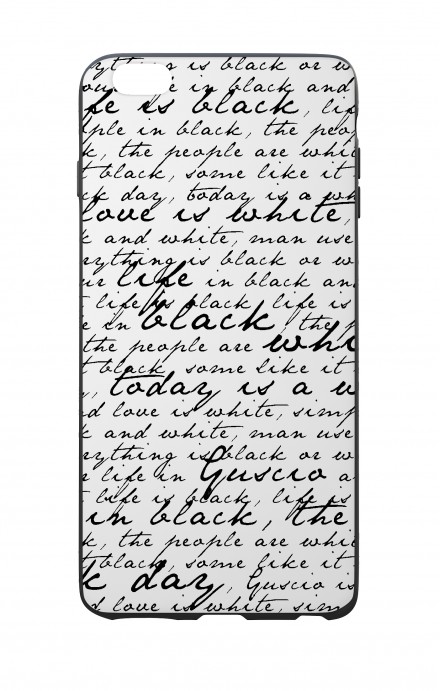 is black or w
in black and
is black, lif
in black, the peo
k, the people are whi
t black, some like it
ck day, today is a wh
love is white,
k and white, man use
rything is black or w
ur life in black an
t life is black, life is
e in black, the p
the people are whi
t black, some like it
, today is a w
d love is white, simp
k and white, man use
rything is black or w
r life in Guscio a
t life is black, life is
in black, the
k, the people are whi
t black, some like it
k day, Guscio is
d love is white, sim